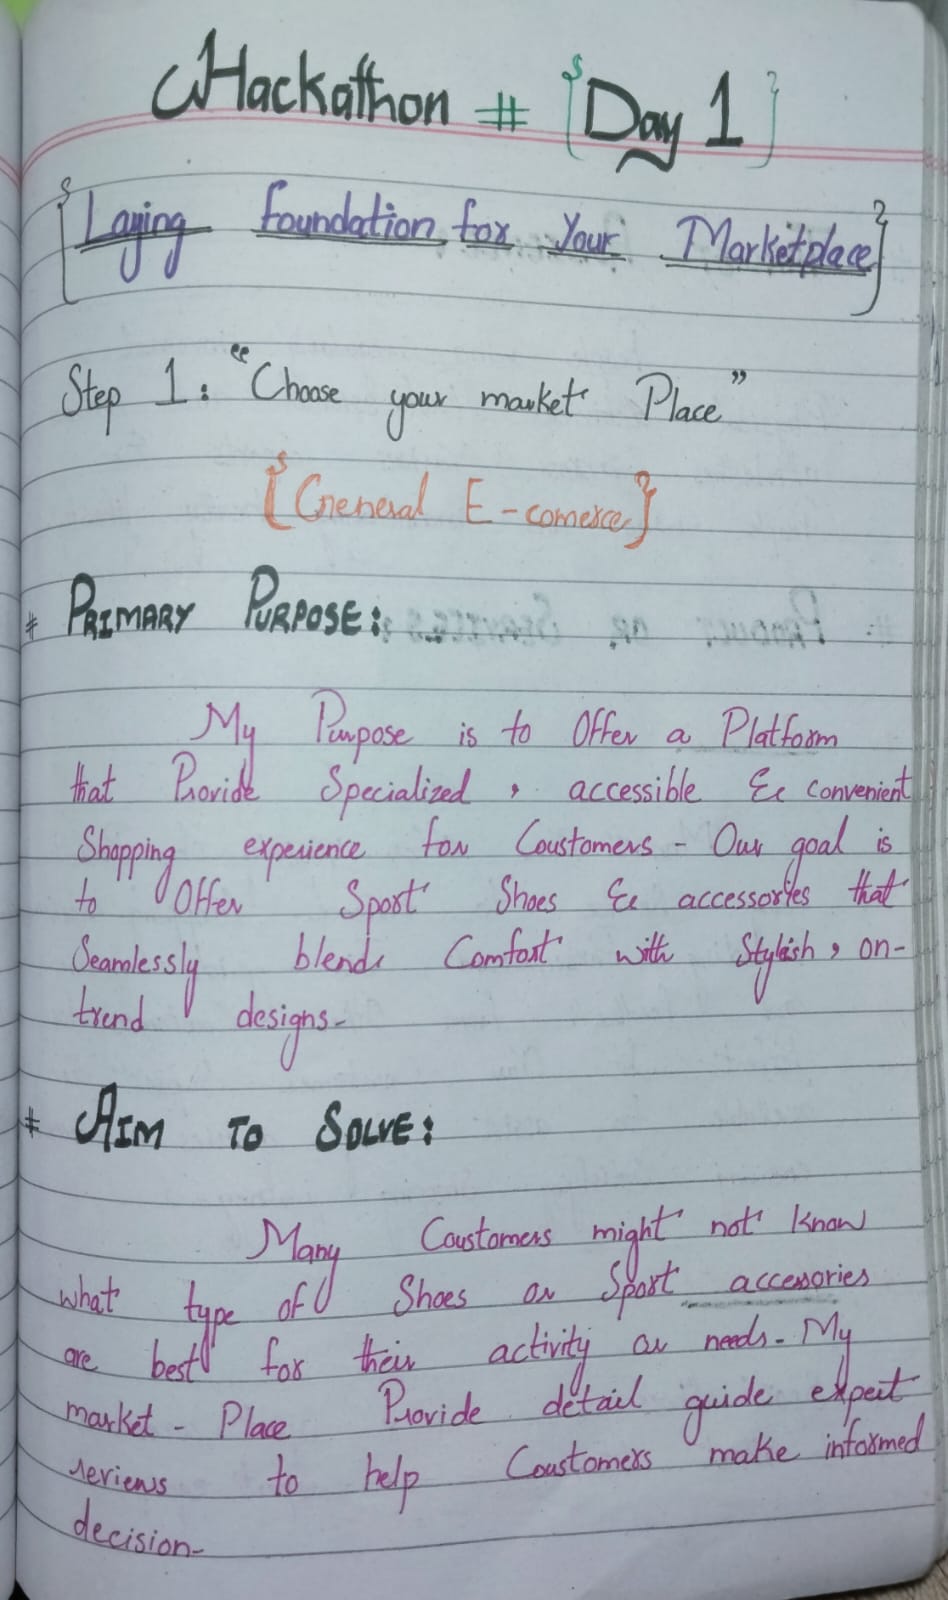 Hackathon # {Day 1}
{Laying Foundation for Your Marketplace}
Step 1: "Choose your market Place"
{General E-comerce}
# PRIMARY PURPOSE:
My Purpose is to Offer a Platform
that Provide Specialized, accessible & convenient
Shopping experience for Coustomers - Our goal is
to Offer Sport Shoes & accessories that
Seamlessly blends Comfort with Stylish, on-
trend designs-
# AIM TO SOLVE:
Many Coustomers might not Know
what type of Shoes or Sport accessories
are best for their activity or needs- My
market - Place Provide detail guide expert
reviews to help Coustomers make informed
decision-